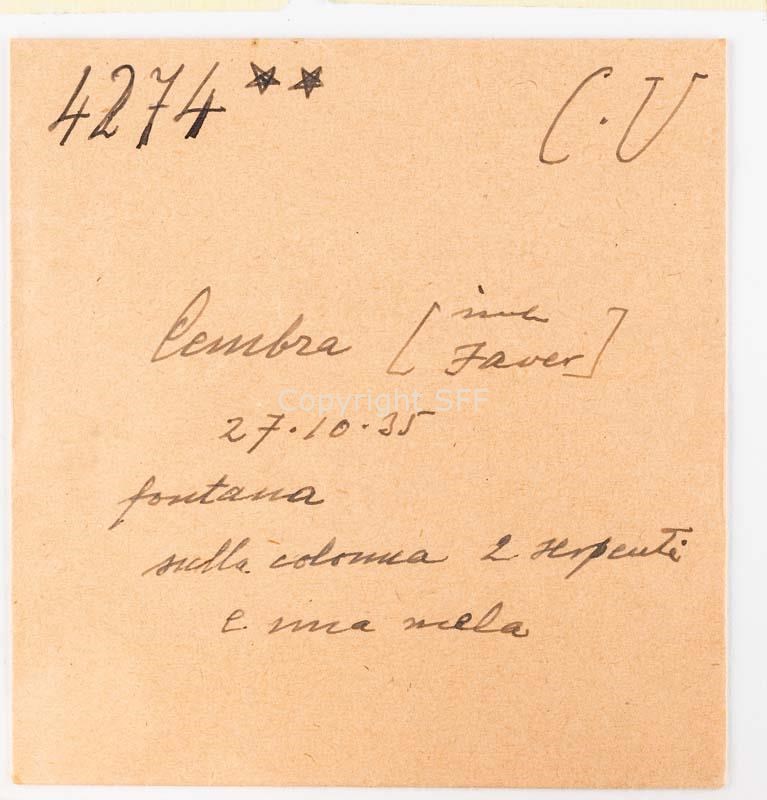 4274★★
C.V
Cembra [ Faver]
Copyright SFF
27.10.35
fontana
sulla colonna 2 serpenti
e una mela